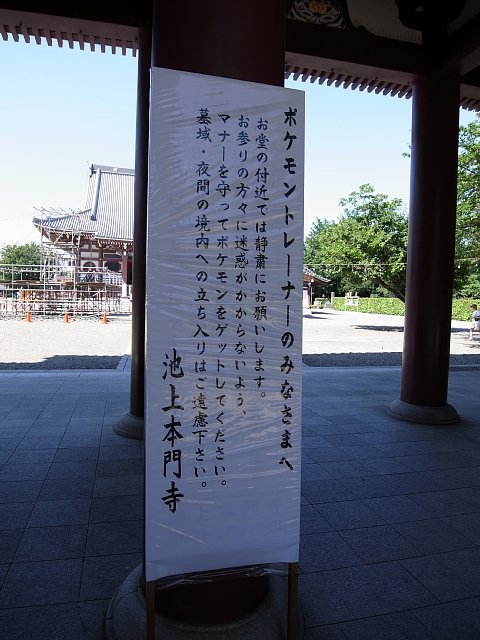 ポケモントレーナーのみなさまへ
お堂の付近では静粛にお願いします。
お参りの方々に迷惑がかからないよう、
マナーを守ってポケモンをゲットしてください。
墓域・夜間の境内への立ち入りはご遠慮下さい。
池上本門寺